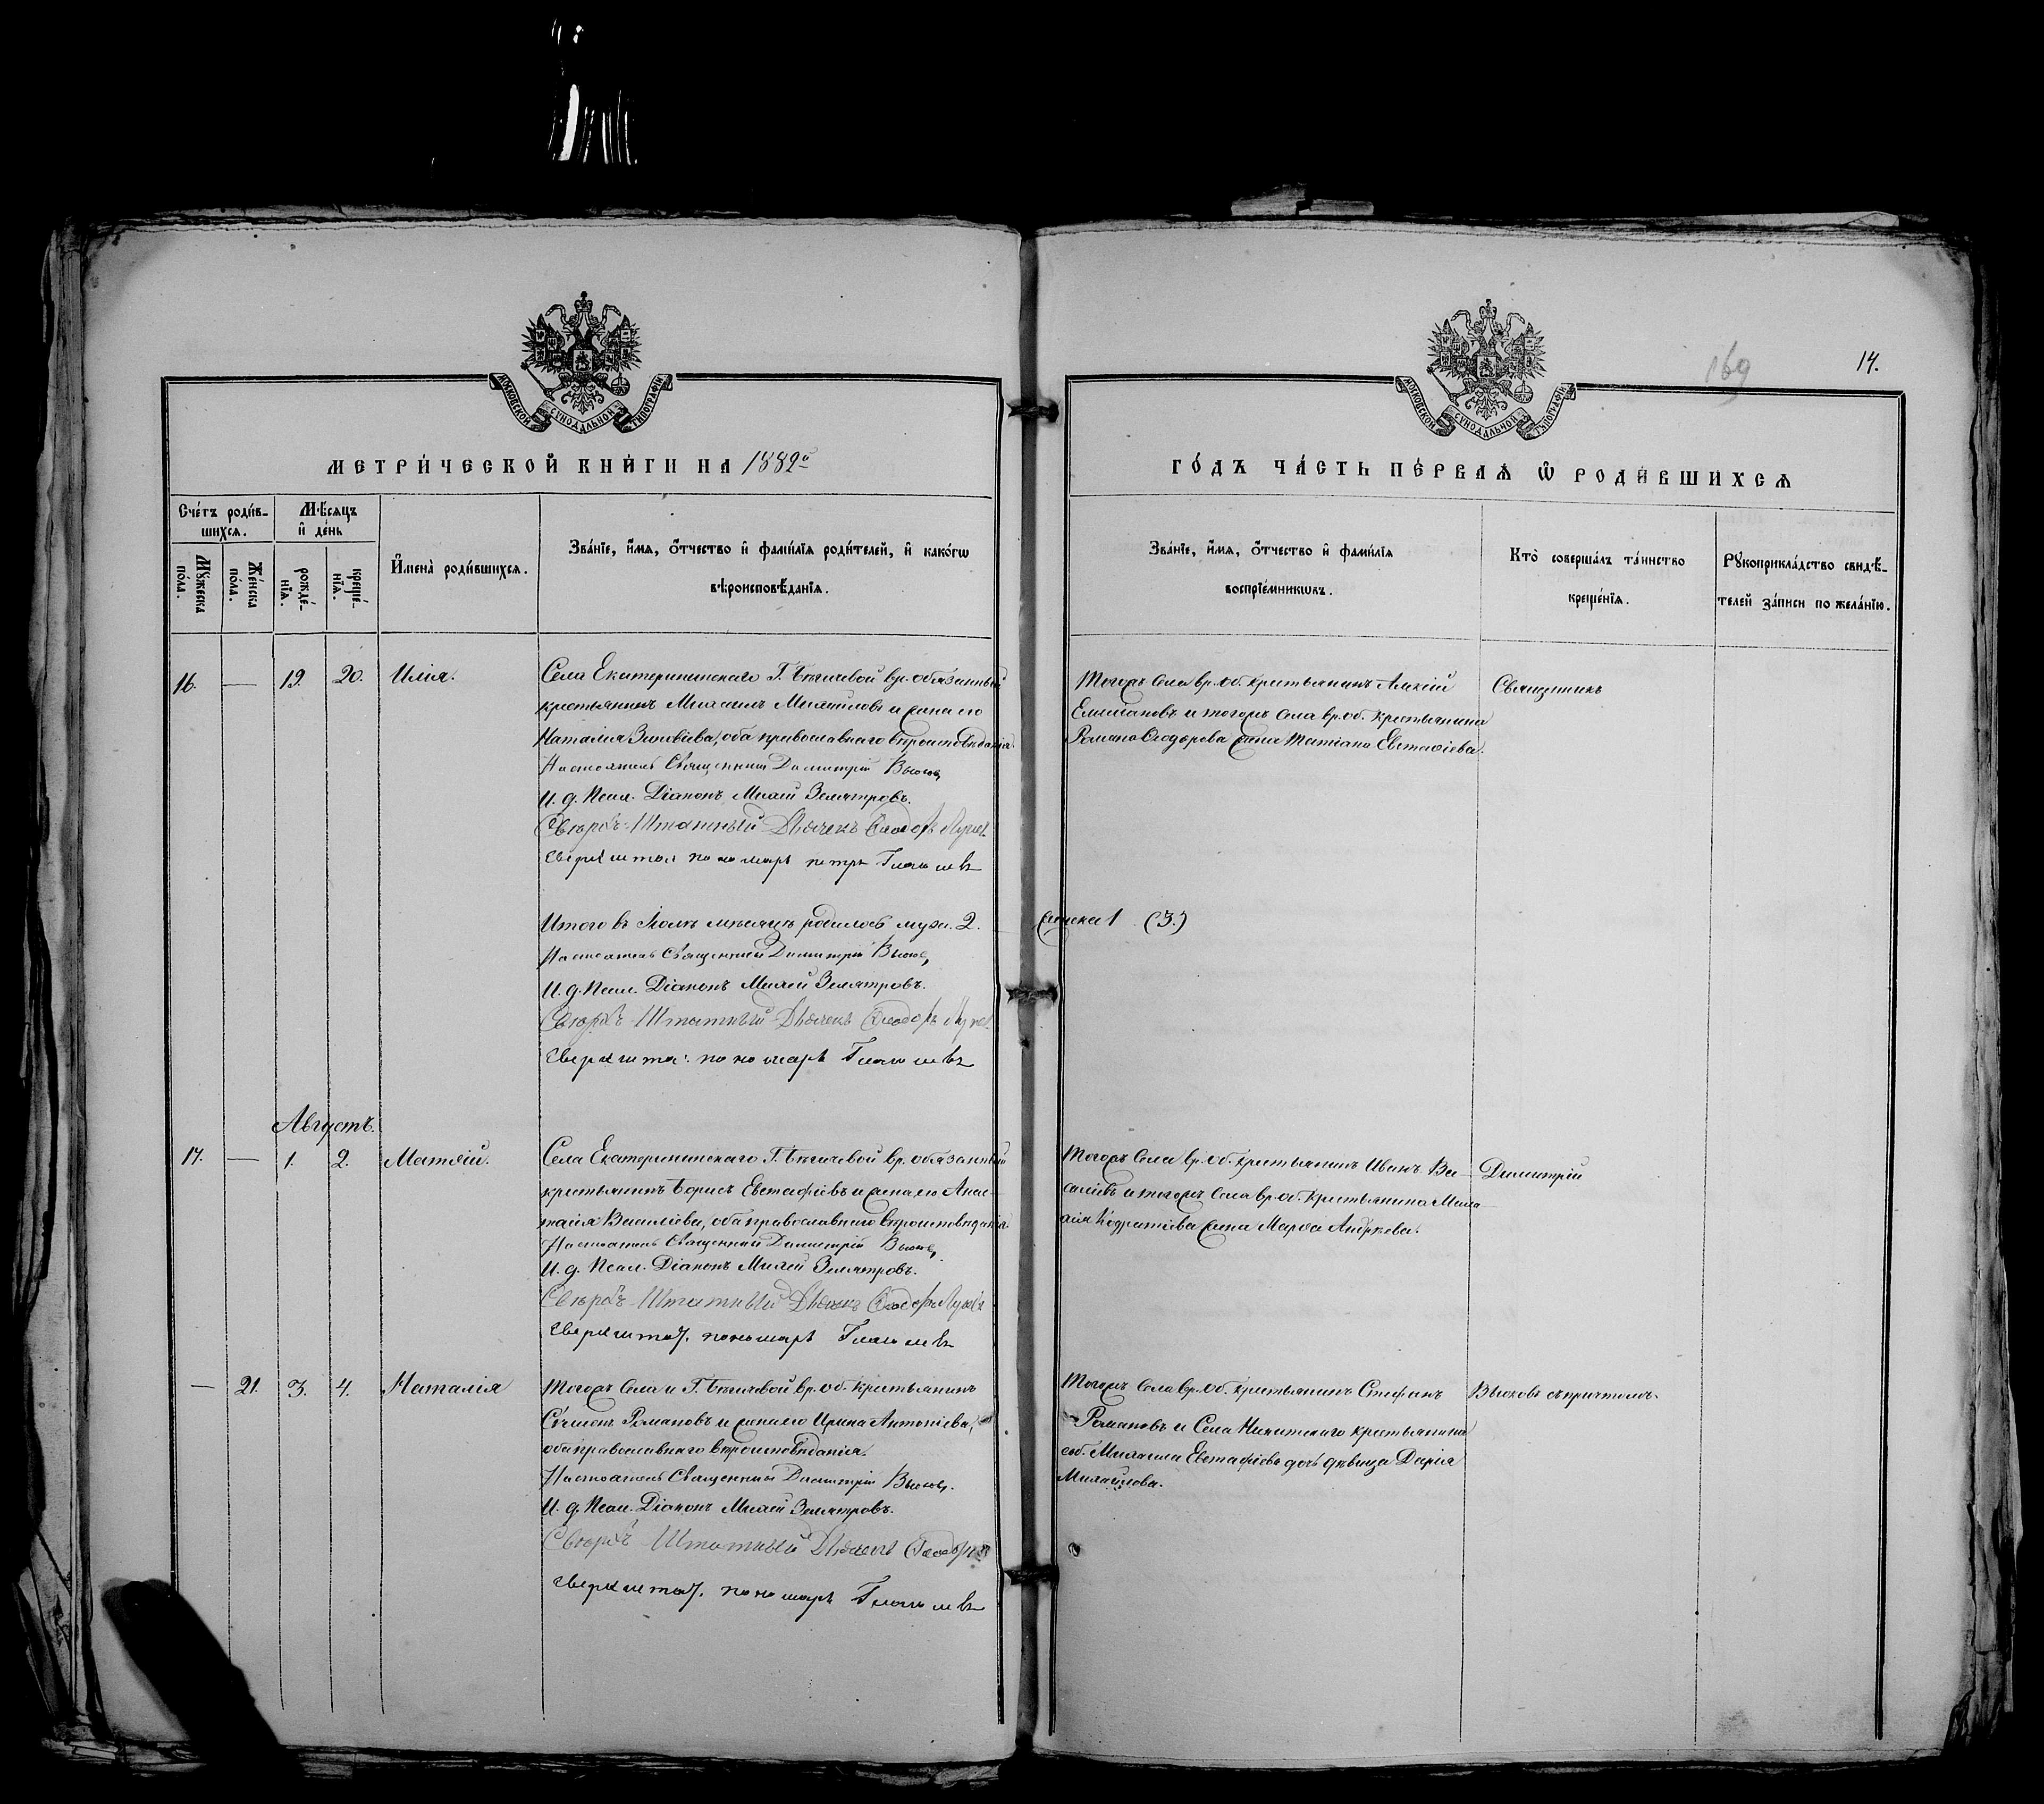 169
14.
МОСКОВСКОЙ СѴНОДАЛЬНОЙ ТИПОГРАФІИ
МОСКОВСКОЙ СѴНОДАЛЬНОЙ ТИПОГРАФІИ
МЕТРИ́ЧЕСКОЙ КНИ́ГИ НА 1882й
ГО́ДЪ ЧА́СТЬ ПЕ́РВАѦ Ѡ РОДИ́ВШИХСѦ
Сче́тъ роди́в-
шихся.
Мѣ́сяцъ
и҆ де́нь
Мꙋ́жеска по́ла.
Же́нска по́ла.
рожде́-
нїя.
креще́-
нїя.
И҆мена̀ роди́вшихся.
Зва́нїе, и҆́мя, ѻ҆́тчество и҆ фамѝлїя роди́телей, и҆ како́гѡ
вѣроисповѣ́данїя.
Зва́нїе, и҆́мя, ѻ҆́тчество и҆ фамѝлїя
воспрїе́мникѡвъ.
Кто̀ соверша́лъ та́инство
креще́нїя.
Рꙋкоприкла́дство свидѣ́-
телей за́писи по жела́нїю.
16. — 19. 20. Илія.
Села Екатерининскаго Г. Бѣгичевой вр. обязанный
крестьянинъ Михаилъ Михайловъ и жена его
Наталія Зиновіева, оба православнаго вѣроисповѣданія.
Настоятель Священникъ Димитрій Вьюковъ
И. д. Псал. Діаконъ Михей Земятровъ.
Сверхъ-Штатный Дьячекъ Ѳеодоръ
сверхштат пономарь петръ
Тогожъ Села вр. об. крестьянинъ Алексій
Емиліановъ и тогожъ села вр. об. крестьянина
Романа Ѳедорова жена Татіана Евстафіева.
Священникъ
Итого въ Іюлѣ мѣсяцѣ родилось муж. 2. женска 1 (3.)
Настоятель Священникъ Димитрій Вьюковъ
И. д. Псал. Діаконъ Михей Земятровъ.
Сверхъ-Штатный Дьячекъ Ѳеодоръ
сверхштат: пономарь
Августъ.
17. — 1. 2. Матѳій.
Села Екатерининскаго Г. Бѣгичевой вр. обязанный
крестьянинъ Борисъ Евстафіевъ и жена его Анас-
тасія Василіева, оба православнаго вѣроисповѣданія.
Настоятель Священникъ Димитрій Вьюковъ
И. д. Псал. Діаконъ Михей Земятровъ.
Сверхъ-Штатный Дьячекъ Ѳеодоръ
сверхштат. пономарь
Тогожъ Села вр. об. крестьянинъ Иванъ Ва-
силіевъ и тогожъ Села вр. об. крестьянина Миха-
ила Кодратіева жена Марѳа Андреева.
Димитрій
— 21. 3. 4. Наталія
Тогожъ Села и Г. Бѣгичевой вр. об. крестьянинъ
Сѵмеонъ Романовъ и жена его Ирина Антоніева,
оба православнаго вѣроисповѣданія.
Настоятель Священникъ Димитрій Вьюковъ.
И. д. Псал. Діаконъ Михей Земятровъ.
Сверхъ Штатный Дьячекъ Ѳеодоръ
сверхштат. пономарь
Тогожъ Села вр. об. крестьянинъ Стефанъ
Романовъ и Села Никитскаго крестьянина
соб. Михаила Евстафіева дочь дѣвица Дарія
Михайлова.
Вьюковъ съ причтомъ.